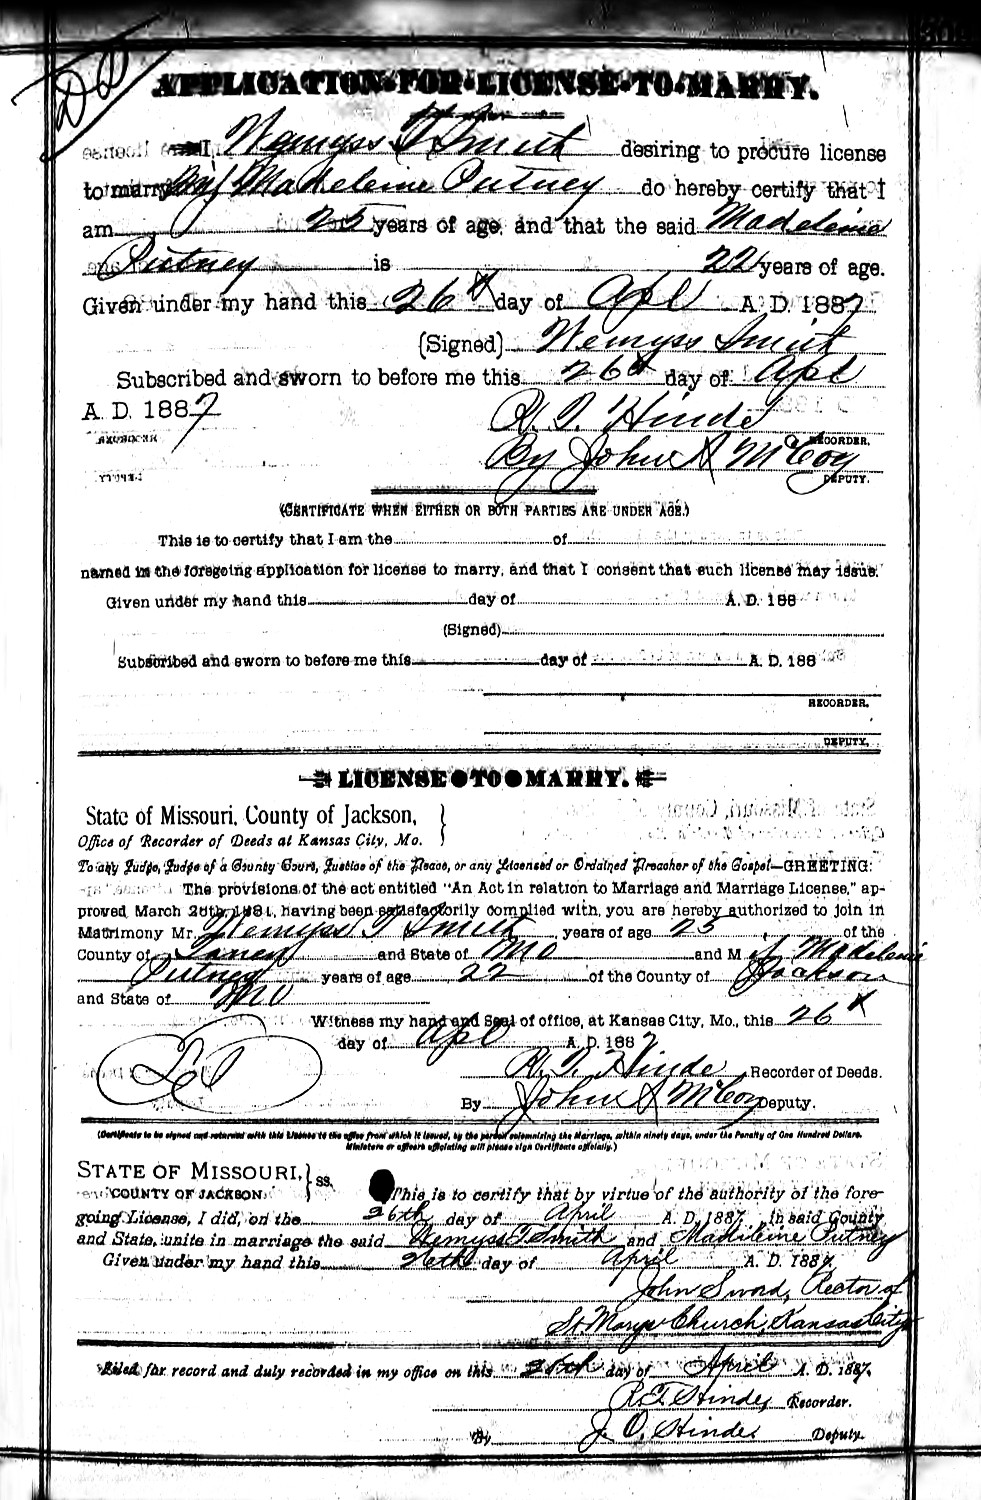 APPLICATION FOR LICENSE TO MARRY.
I, Wemyss T Smith desiring to procure license
to marry Madeleine Putney do hereby certify that I
am 25 years of age, and that the said Madeleine
Putney is 22 years of age.
Given under my hand this 26th day of Apl A. D. 1887
(Signed) Wemyss Smith
Subscribed and sworn to before me this 26th day of Apl
A. D. 1887
R. T. Hinde
RECORDER.
By John A McCoy
DEPUTY.
(CERTIFICATE WHEN EITHER OR BOTH PARTIES ARE UNDER AGE.)
This is to certify that I am the of
named in the foregoing application for license to marry, and that I consent that such license may issue.
Given under my hand this day of A. D. 188
(Signed)
Subscribed and sworn to before me this day of A. D. 188
RECORDER.
DEPUTY.
LICENSE TO MARRY.
State of Missouri, County of Jackson,
Office of Recorder of Deeds at Kansas City, Mo.
To any Judge, Judge of a County Court, Justice of the Peace, or any Licensed or Ordained Preacher of the Gospel—GREETING:
The provisions of the act entitled "An Act in relation to Marriage and Marriage License," ap-
proved March 26th, 1881, having been satisfactorily complied with, you are hereby authorized to join in
Matrimony Mr. Wemyss T Smith, years of age 25 of the
County of Taney and State of Mo and M J Madeleine
Putney years of age 22 of the County of Jackson
and State of Mo
Witness my hand and Seal of office, at Kansas City, Mo., this 26th
day of Apl A. D. 1887
R. T. Hinde Recorder of Deeds.
By John A McCoy Deputy.
(Certificate to be signed and returned with this License to the office from which it issued, by the person solemnizing the Marriage, within ninety days, under the Penalty of One Hundred Dollars.
Ministers or officers officiating will please sign Certificate officially.)
STATE OF MISSOURI, ss.
COUNTY OF JACKSON. This is to certify that by virtue of the authority of the fore-
going License, I did, on the 26th day of April A. D. 1887, in said County
and State, unite in marriage the said Wemyss T Smith and Madeleine Putney
Given under my hand this 26th day of April A. D. 1887.
John Sword, Rector of
St Mary's Church, Kansas City
Filed for record and duly recorded in my office on this 26th day of April A. D. 1887.
R. T. Hinde, Recorder.
By J. O. Hinde Deputy.